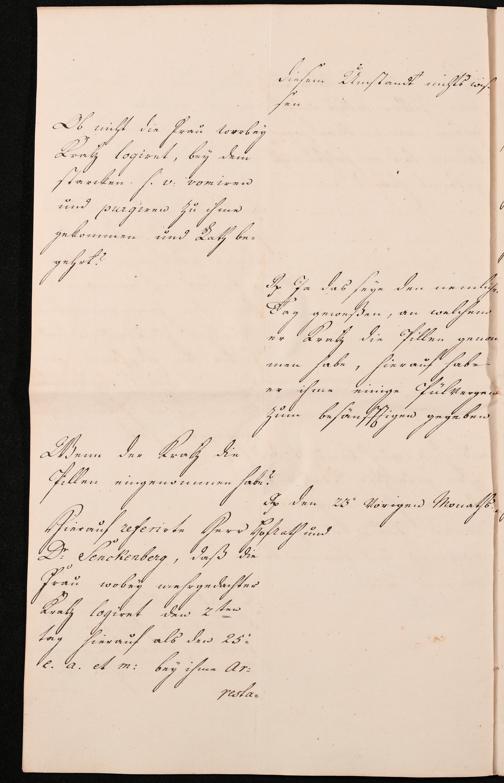 diesem Umstandt nichts wis-
sen
Ob nicht die Frau worbey
Kratz logiret, bey dem
starcken s. v. vomiren
und purgiren zu ihme
gekommen und Rath be-
gehrt?
Rp Ja das seye den nemlich
Tag gewesßen, an welchem
er Kratz die Pillen genom
men habe, hierauf habe
er ihme einige Pülvergen
zum besänfftigen gegeben
Wenn der Kratz die
Pillen eingenommen habe?
Rp den 25 vorigen Monaths.
Hierauf referirte Herr Hofrath und
Dr. Senckenberg, daß die
Frau wobey mehrgedachter
Kratz logiret den 2ten
tag hierauf als den 25:
e. a. et m: bey ihme Ar-
resta-